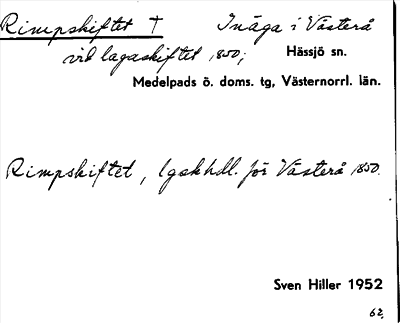 Rimpskiftet † Inäga i Västerå
vid lagaskiftet 1850; Hässjö sn.
Medelpads ö. doms. tg, Västernorrl. län.
Rimpskiftet, lgskhdl. för Västerå 1850.
Sven Hiller 1952
62.